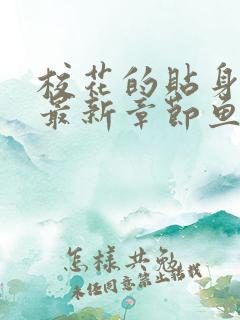 校花的貼身
最新章節魚
怎樣共勉
未经同意禁止转载